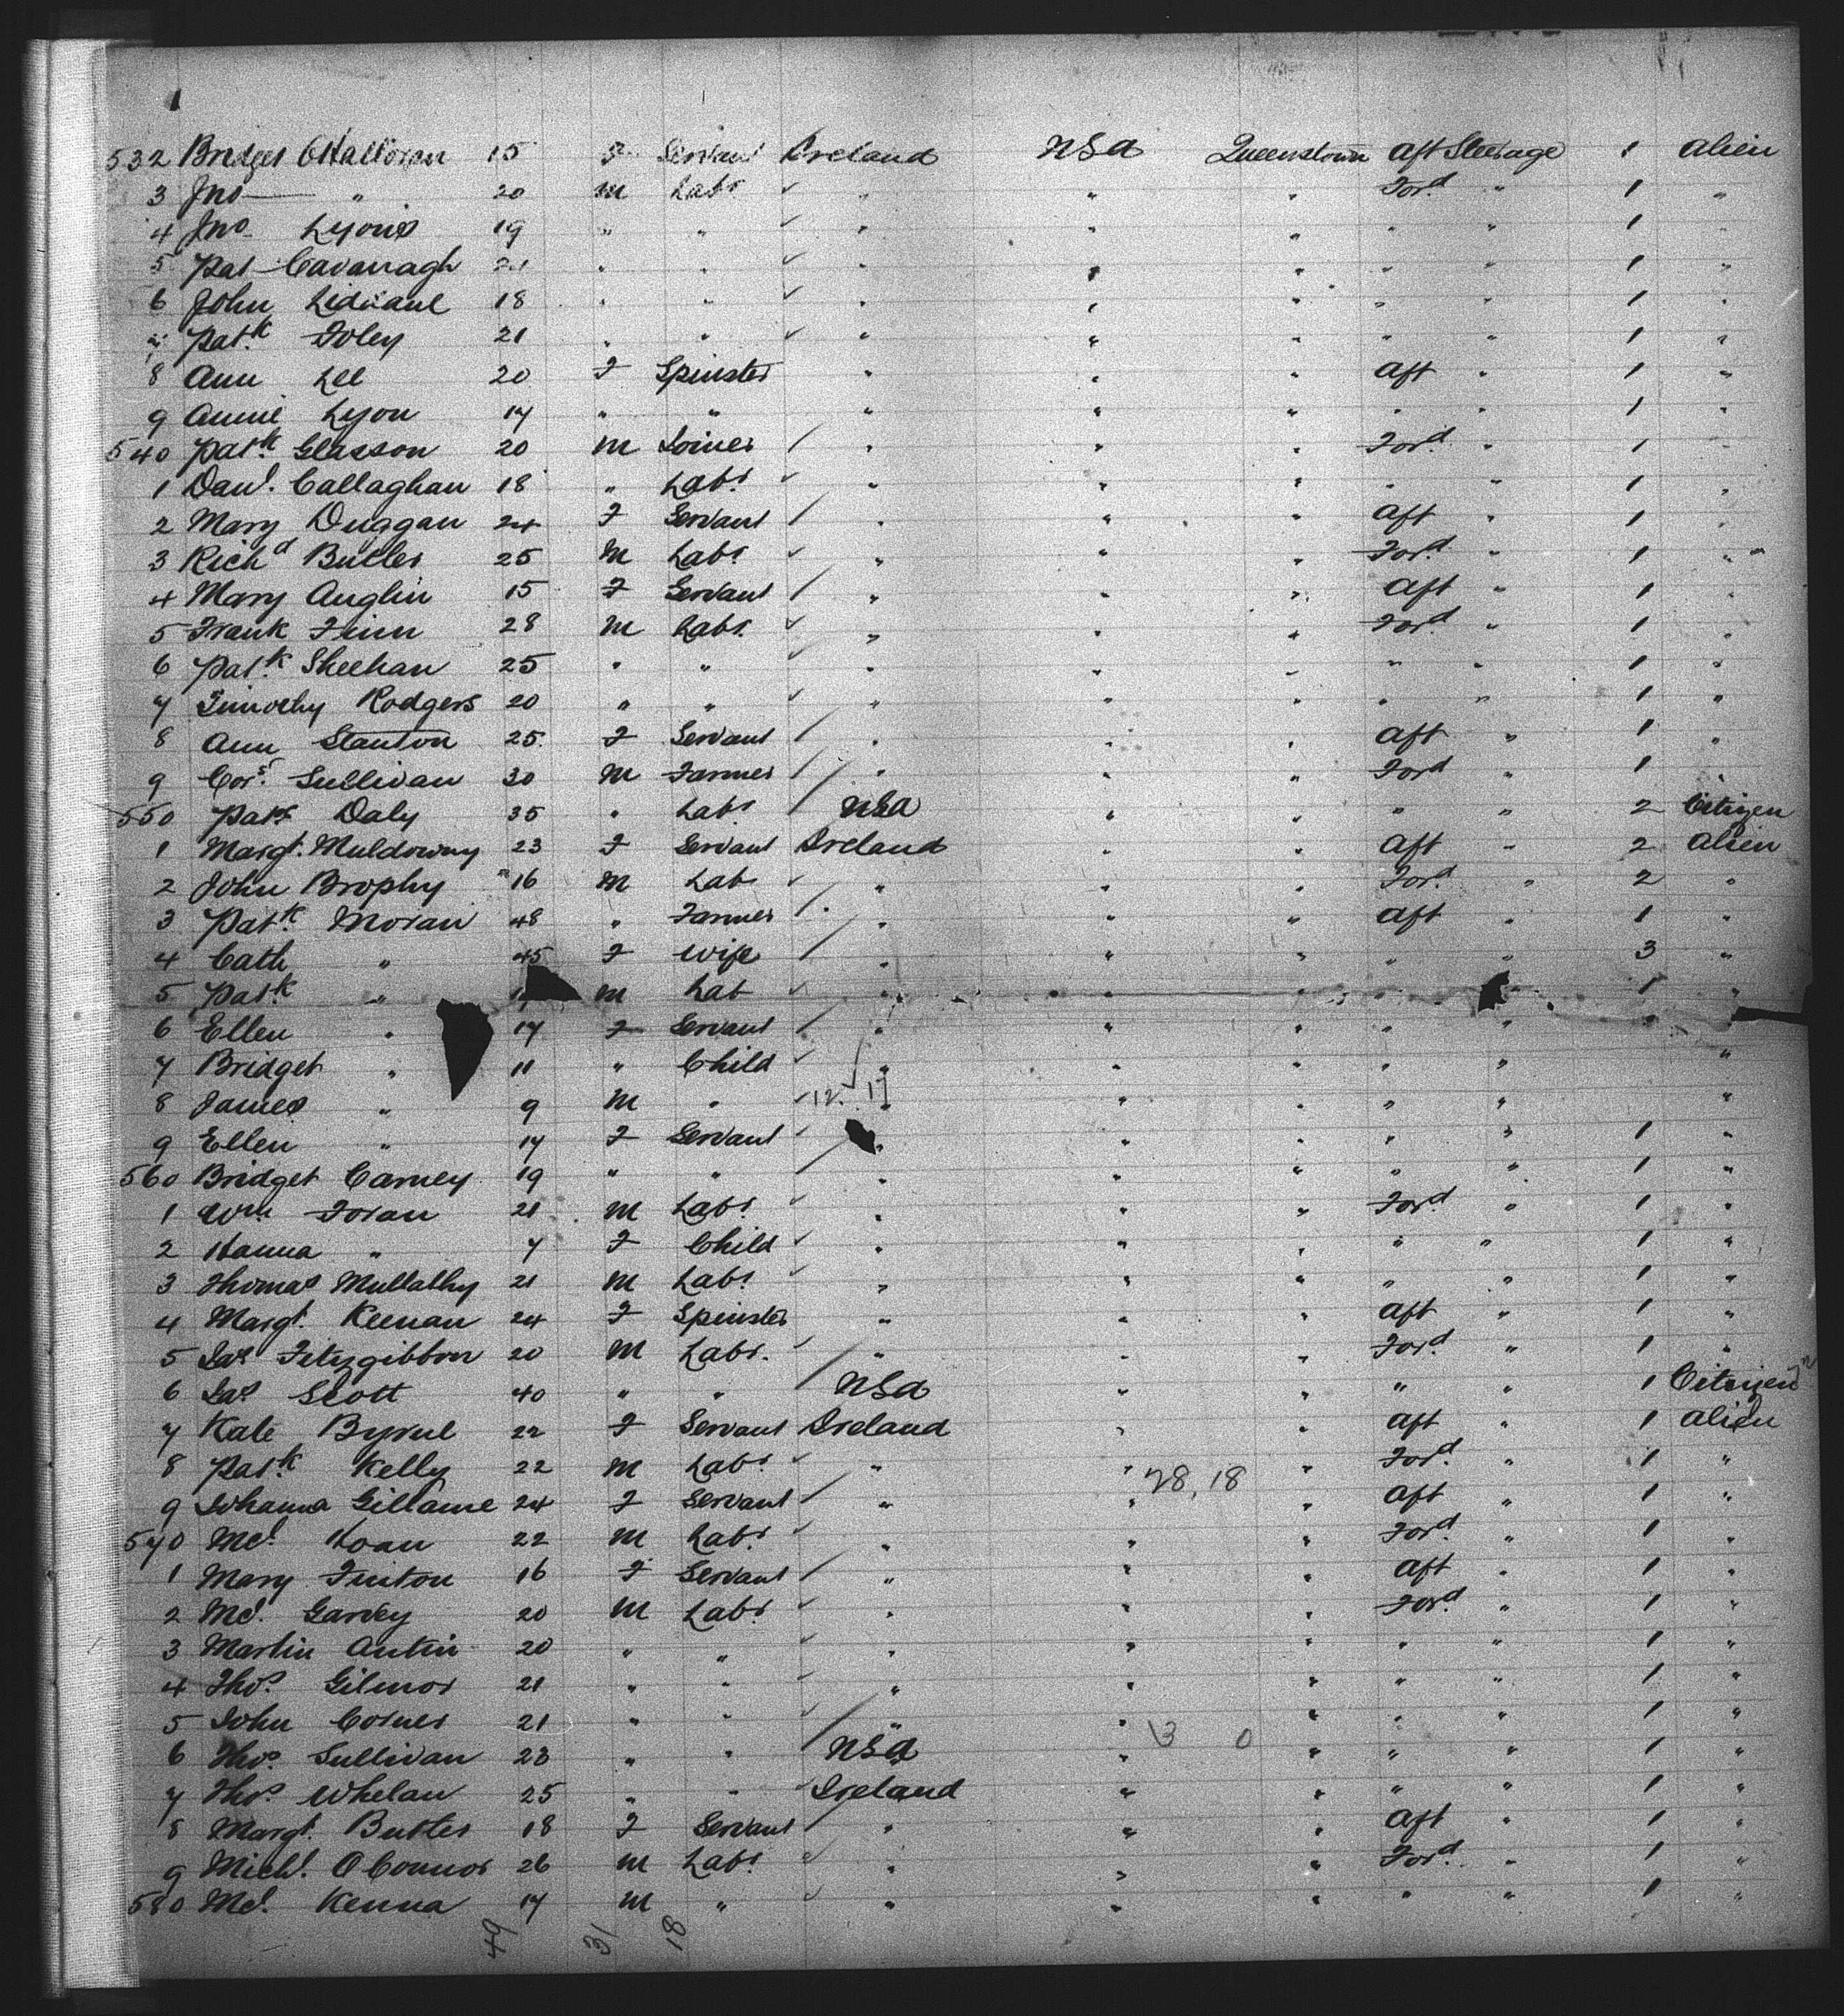 532 Bridget O'Halloran 15 F Servant Ireland USA Queenstown Aft Steerage 1 Alien
3 Jno — " 20 M Labr " " " Ford " 1 "
4 Jno Lyons 19 " " " " " " " 1 "
5 Pat Cavanagh " " " " " " " 1 "
6 John Lidnane 18 " " " " " " " 1 "
7 Patk Foley 21 " " " " " " " 1 "
8 Ann Lee 20 F Spinster " " " Aft " 1 "
9 Annie Lyon 17 " " " " " " " 1 "
540 Patk Glasson 20 M Joiner " " " Ford " 1 "
1 Danl. Callaghan 18 " Labr " " " " " 1 "
2 Mary Duggan 24 F Servant " " " Aft " 1 "
3 Richd Butler 25 M Labr " " " Ford " 1 "
4 Mary Anglin 15 F Servant " " " Aft " 1 "
5 Frank Finn 28 M Labr " " " Ford " 1 "
6 Patk Sheehan 25 " " " " " " " 1 "
7 Timothy Rodgers 20 " " " " " " " 1 "
8 Ann Stanton 25 F Servant " " " Aft " 1 "
9 Cors. Sullivan 30 M Farmer " " " Ford " 1
550 Patk Daly 35 " Labr USA " " " " 2 Citizen
1 Margt. Muldowny 23 F Servant Ireland " " Aft " 2 Alien
2 John Brophy 16 M Lab " " " Ford " 2 "
3 Patk Moran 48 " Farmer " " " Aft " 1 "
4 Cath " 45 F Wife " " " " " 3 "
5 Patk " M Lab " " " " 1 "
6 Ellen " 17 F Servant " " " " " "
7 Bridget " 11 " Child " " " " " "
8 James " 9 M " 12. 17 " " " " "
9 Ellen " 17 F Servant " " " " " 1 "
560 Bridget Carney 19 " " " " " " " 1 "
1 Wm Foran 21 M Labr " " " Ford " 1 "
2 Hanna " 7 F Child " " " " " 1 "
3 Thomas Mullalhy 21 M Labr " " " " " 1 "
4 Margt. Keenan 24 F Spinster " " " Aft " 1 "
5 Jas Fitzgibbon 20 M Labr. " " " Ford " 1 "
6 Jas Scott 40 " " USA " " " " 1 Citizen
7 Kate Byrne 22 F Servant Ireland " " Aft " 1 Alien
8 Patk Kelly 22 M Labr " " " Ford " 1 "
28, 18
9 Johanna Gillane 24 F Servant " " " Aft " 1 "
570 Ml. Hoan 22 M Labr " " " Ford " 1 "
1 Mary Finton 16 F Servant " " " Aft " 1 "
2 Ml. Garvey 20 M Labr " " " Ford " 1 "
3 Martin Antin 20 " " " " " " " 1 "
4 Thos. Gilmor 21 " " " " " " " 1 "
5 John Corner 21 " " " " " " " 1 "
3 0
6 Thos Sullivan 23 " " USA " " " " 1 "
7 Thos. Whelan 25 " " Ireland " " " " 1 "
8 Margt. Butler 18 F Servant " " " Aft " 1 "
9 Michl. O'Connor 26 M Labr " " " Ford " 1 "
580 Ml. Kenna 17 M " " " " " " 1 "
49 31 18